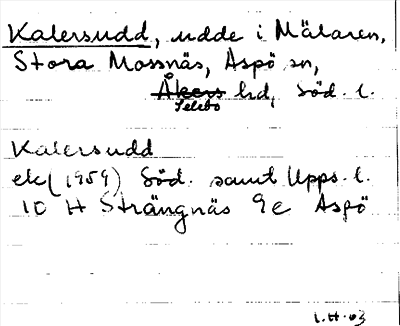 Kalersudd, udde i Mälaren,
Stora Mossnäs, Aspö sn,
Åkers hd, Söd. l.
Selebo
Kalersudd
ek (1959) Söd. samt Upps. l.
10 H Strängnäs 9e Aspö
I.H.03